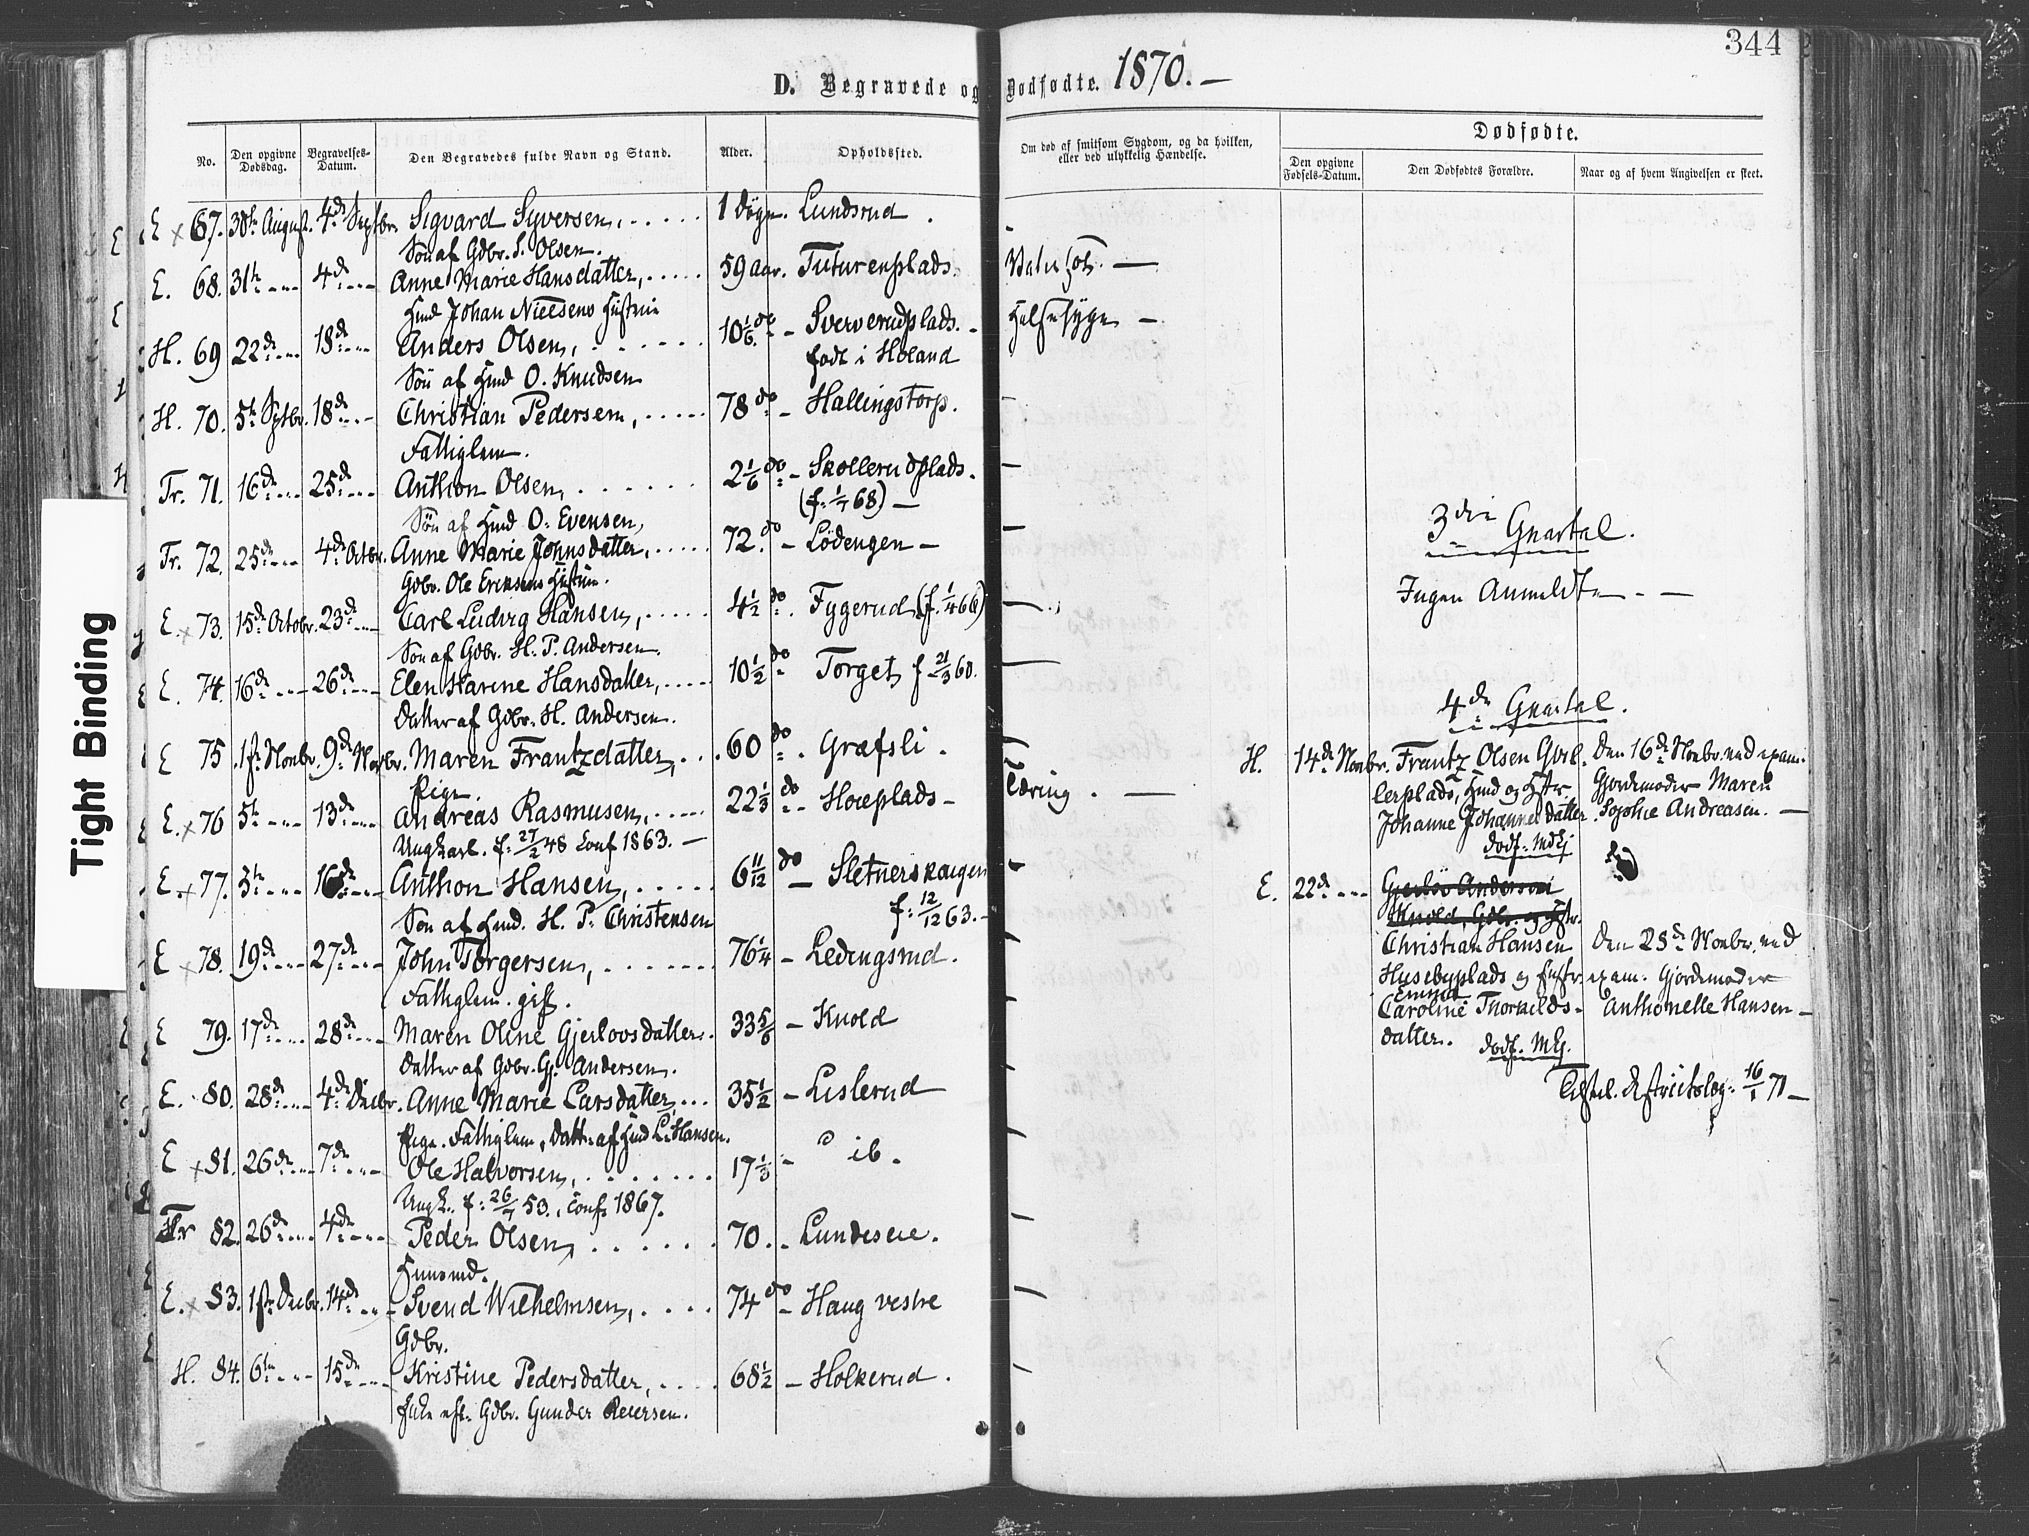 344
D. Begravede og Dødfødte. 1870. —
No.
Den opgivne Dødsdag.
Begravelses-Datum.
Den Begravedes fulde Navn og Stand.
Alder.
Opholdssted.
Om død af smitsom Sygdom, og da hvilken,
eller ved ulykkelig Hændelse.
Dødfødte.
Den opgivne Fødsels-Datum.
Den Dødfødtes Forældre.
Naar og af hvem Angivelsen er skeet.
E x 67. 30te August. 4de Septbr. Sigvard Syversen, 1 Døgn. Lundsrud.
Søn af Gdbr. S. Olsen.
E. 68. 31te 4de Anne Marie Hansdatter, 59 Aar. Tuturenplads.
Husmd Johan Nielsens Hustru
H. 69 22de 18de Anders Olsen, 10 1/6 do - Sververudplads. Halssyge —
Søn af Husmd O. Knudsen født i Høland
H. 70. 5te Septbr. 18de Christian Pedersen, 78 do - Hallingstorp. —
Fattiglem.
Tr. 71. 16de 25de Anthon Olsen, 2 1/6 do - Skøllerudplads. —
Søn af Husmd O. Evensen, (f: 1/7 68) —
Tr. 72. 25de 4de Octbr. Anne Marie Johnsdatter, 72. do - Lödengen —
Gdbr. Ole Eriksens Hustru.
E. x 73. 15de Octobr. 23de Carl Ludvig Hansen, 4 1/2 do. Fygerud (f. 1/4 66) —
Søn af Gdbr. H. P. Andersen.
E. 74. 16de 26de Elen Karine Hansdatter, 10 1/2 do Torget, f 21/3 60. —
Datter af Gdbr. H. Andersen.
E 75. 1ste Novbr. 9de Novbr. Maren Frantzdatter, 60 do. Græfsli. —
Pige.
E. x 76 5te 13de Andreas Rasmusen, 22 1/3 do - Hoieplads - Tæring. —
Ungkarl. f: 27/2 48 Conf 1863. —
E. x 77. 3te 16de Anthon Hansen, 6 11/12 do — Sletnerskaugen
Søn af Husmd. H. P. Christensen f: 12/12 63. -
E x 78. 19de 27de John Torgersen, 76 1/4 - Ledingsrud. —
Fattiglem. gift.
E 79. 17de 28de Maren Oline Gjerløvsdatter. 33 5/6 - Knold —
Datter af Gdbr. Gj. Andersen.
E. 80. 28de 4de Decbr. Anne Marie Larsdatter, 35 1/2 - Lislerud —
Pige. Fattiglem, Datt: af Husmd L. Hansen.
E x 81. 26de 7de Ole Halvorsen, 17 1/3 - ib.
Ungk. f: 26/7 53., Conf. 1867.
Tr 82. 26de 4de Peder Olsen, 70. - Lundeseie. —
Husmd.
E. x 83. 1ste Decbr. 14de Svend Wilhelmsen, 74 do - Haug vestre —
Gdbr.
H. 84. 6te 15de Kristine Pedersdatter, 68 1/2 - Holkerud. —
Enke eft. Gdbr. Gunder Reiersen.
3die Qvartal.
Ingen Anmeldte. —
4de Qvartal.
H. 14de Novbr. Frantz Olsen Den 16de Novbr. ved exam.
lerplads, Husmd og Hstr. Gjordemoder Maren
Johanne Johannesdatter. Sophie Andreasen. —
dødf. M
E. 22de Gjerløv Andersen
Knold, Gdbr. og Hstr.
Christian Hansen Den 23de Novbr. ved
Husebyplads og Hustr. exam. Gjordemoder
Emma
Caroline Thorkilds- Anthonelle Hansen —
datter. dødf. M
16/1 71 —
Tight Binding